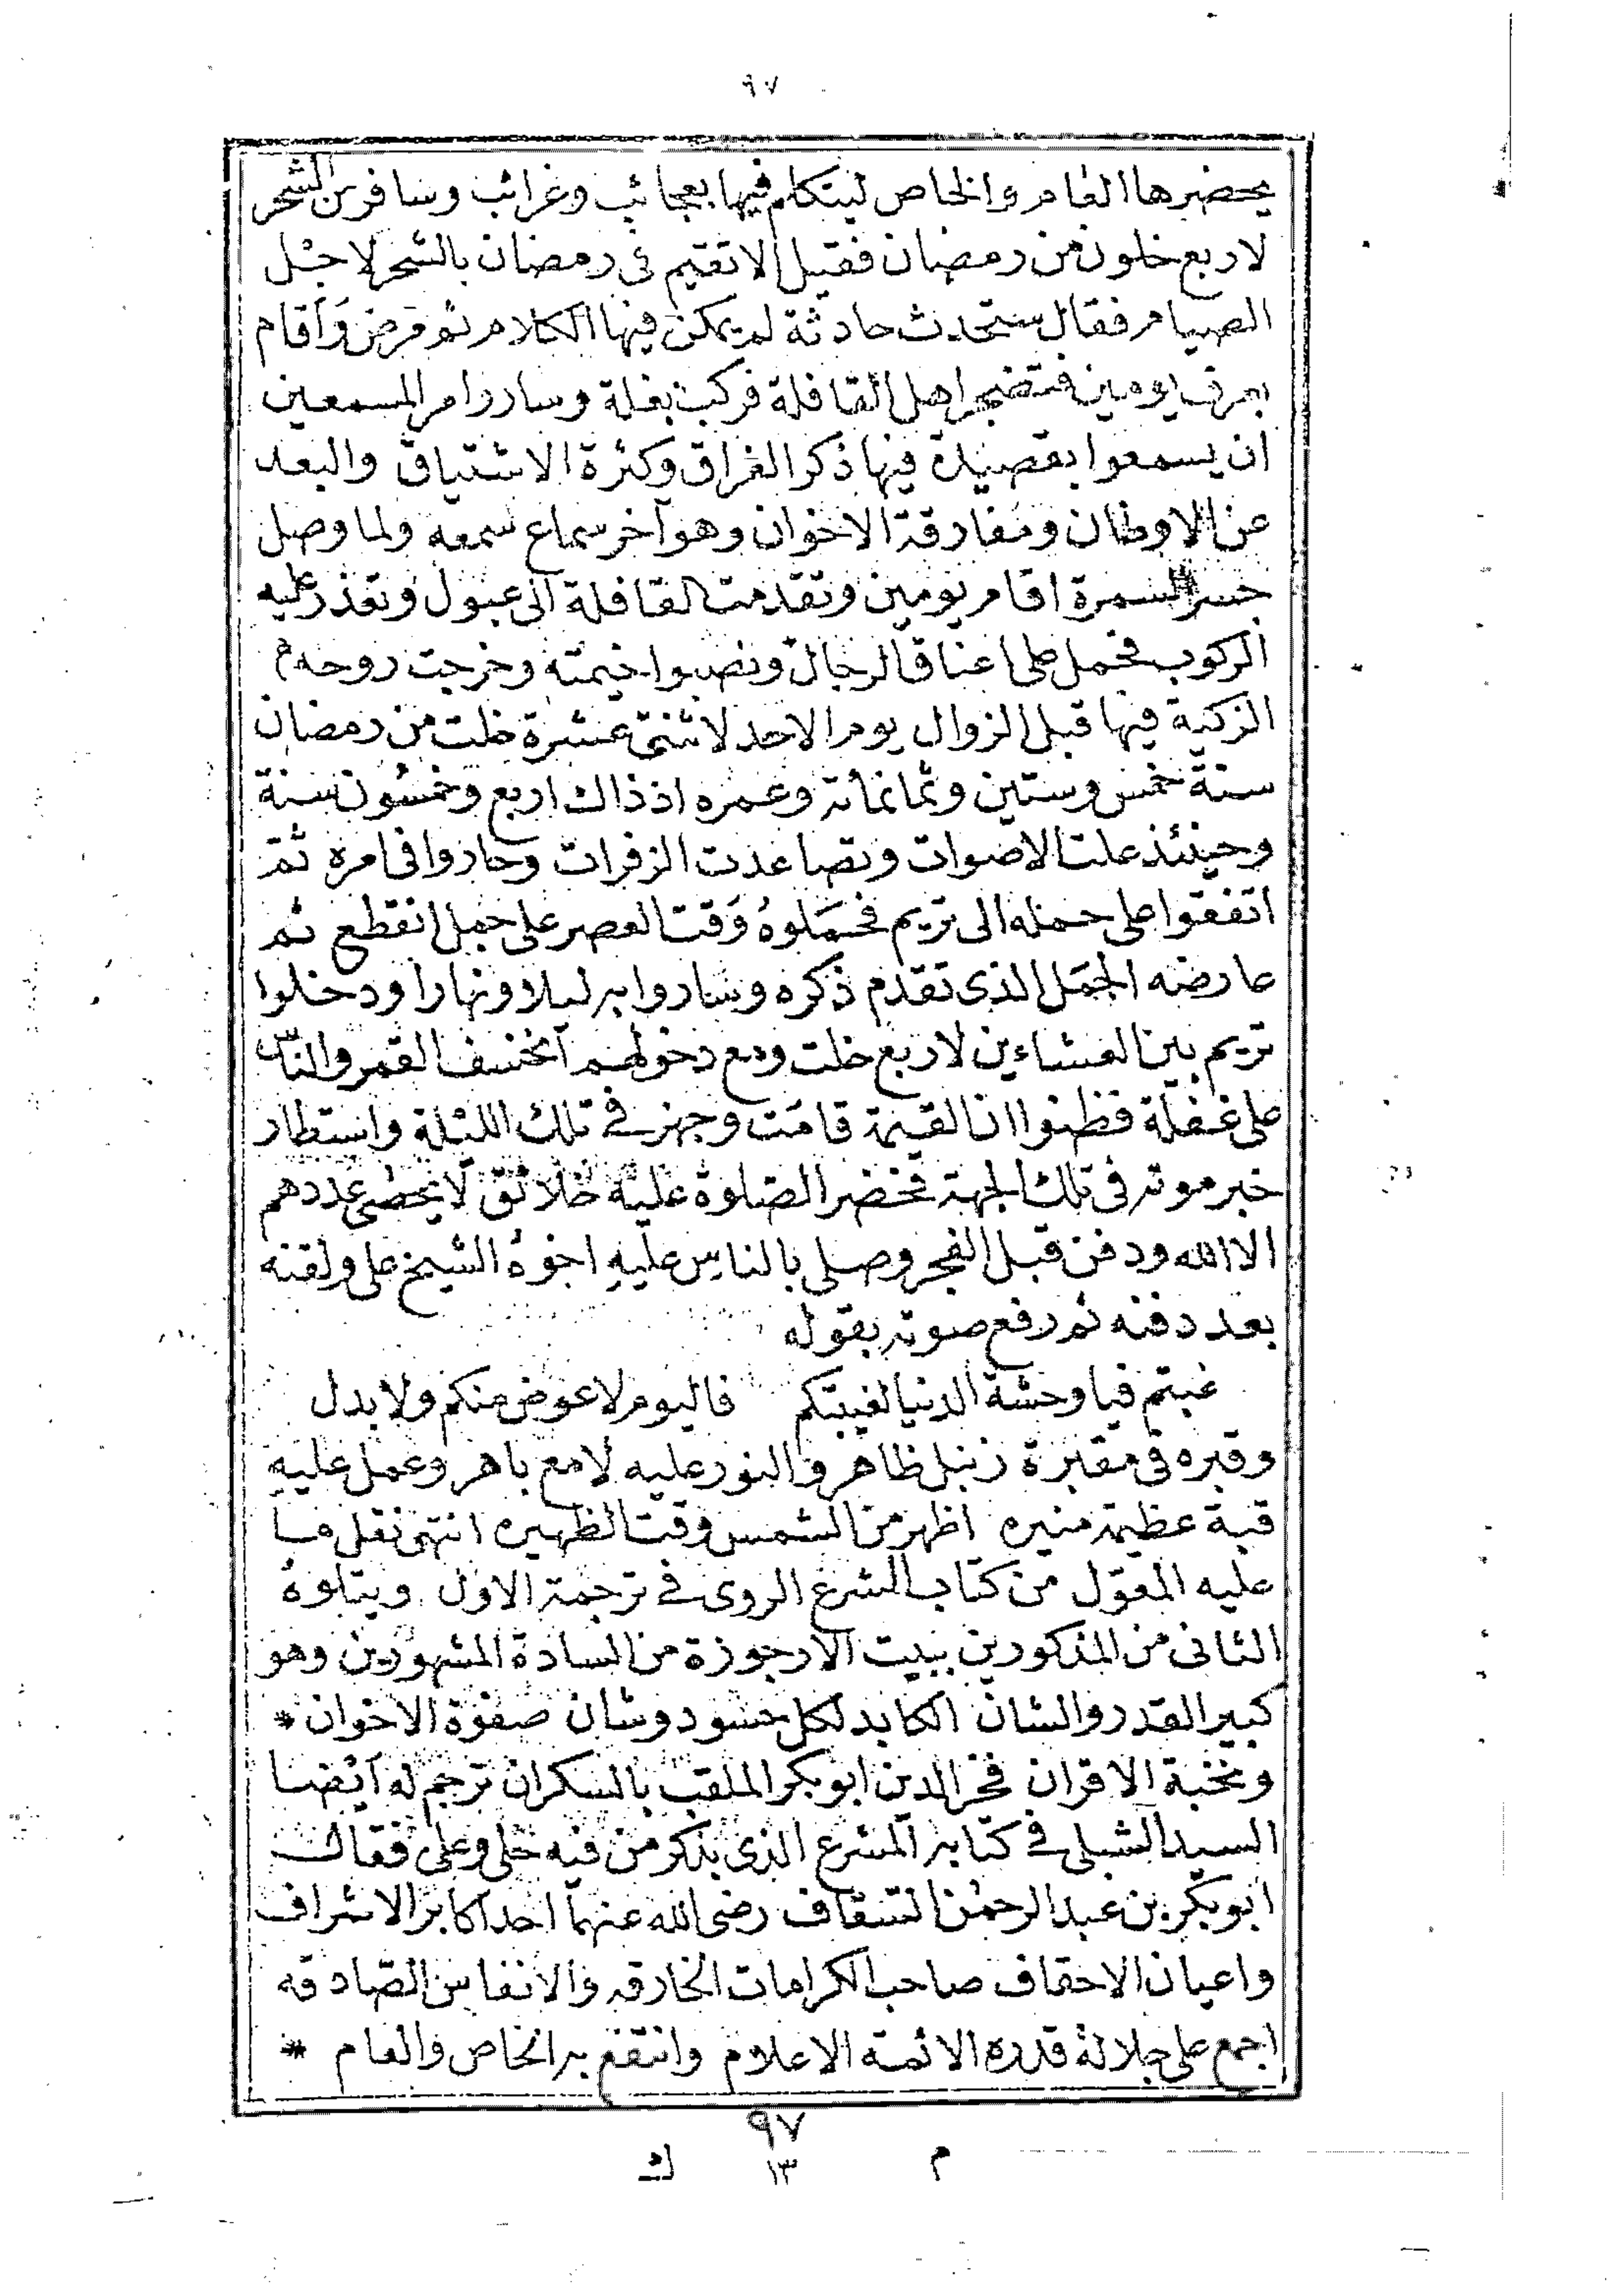 ٩٧
يحضرها العام والخاص ليتكلم فيها بعجائب وغرائب وسافر من الشحر
لاربع خلون من رمضان فقيل الا تقيم فى رمضان بالشحر لاجل
الصيام فقال ستحدث حادثة لم يمكن فيها الكلام ثم مرض وَأقام
بعرف يومين فتضجر اهل القافلة فركب بغلة وسار وامر المسمعين
ان يسمعوا بقصيدة فيها ذكر الفراق وكثرة الاشتياق والبعد
عن الاوطان ومفارقة الاخوان وهو آخر سماع سمعه ولما وصل
السمرة اقام يومين وتقدمت القافلة الى عبول وتعذر عليه
الركوب فحمل على اعناق الرجال ونصبوا خيمته وخرجت روحه
الزكية فيها قبل الزوال يوم الاحد لاثنتى عشرة خلت من رمضان
سنة خمس وستين وثمانمائة وعمره اذ ذاك اربع وخمسُون سنة
وحينئذ علت الاصوات وتصاعدت الزفرات وحاروا فى امره ثمّ
اتفقوا على حمله الى تريم فحمَلوهُ وَقت العصر على جمل انقطع ثم
عارضه الجمَل الذى تقدم ذكره وساروا به ليلا ونهارا ودخلوا
تريم بين العشاءين لاربع خلت ومع دخولهم آنخسف القمر والناس
على غفلة فظنوا ان القيمة قامَت وجهز فى تلك الليْلة واستطار
خبر موته فى تلك الجهة فحضر الصّلوة عليه خلائق لا يحصى عددهم
الا الله ودفن قبل الفجر وصلى بالناسِ عليهِ اخوهُ الشيخ على ولقنه
بعد دفنه ثم رفع صوته بقوله
غبتم فيا وحشة الدنيا لغيبتكم فاليوم لا عوض منكم ولا بدل
وقبره فى مقبرة زنبل ظاهر والنور عليه لامع باهر وعمل عليهِ
قبة عظيمة منيره اظهر من الشمس وقت الظهيره انتهى نقل مــا
عليه المعوّل من كتاب الشرع الروى فى ترجمة الاول ويتلوهُ
الثانى من المذكورين ببيت الارجوزة من السادة المشهورين وهو
كبير القدر والشان الكابد لكل حسود وشان صفوة الاخوان *
ونخبة الاقران فخر الدين ابوبكر الملقب بالسكران ترجم له آيْضــا
السيد الشبلى فى كتابه آلمشرع الذى بذكر من فيه حلى وعلى فقال
ابوبكر بن عبد الرحمٰن السقاف رضى الله عنهما احد اكابر الاشراف
واعيان الاحقاف صاحب الكرامات الخارقه والانفاس الصّادقه
اجمع على جلالة قدره الائمة الاعلام وانتفع به الخاص والعام *
٩٧
م ١٣ ك